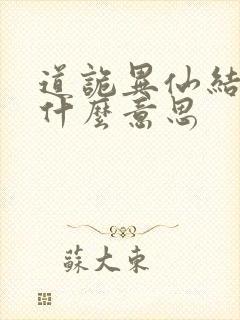 道詭異仙結
什麼意思
蘇大東